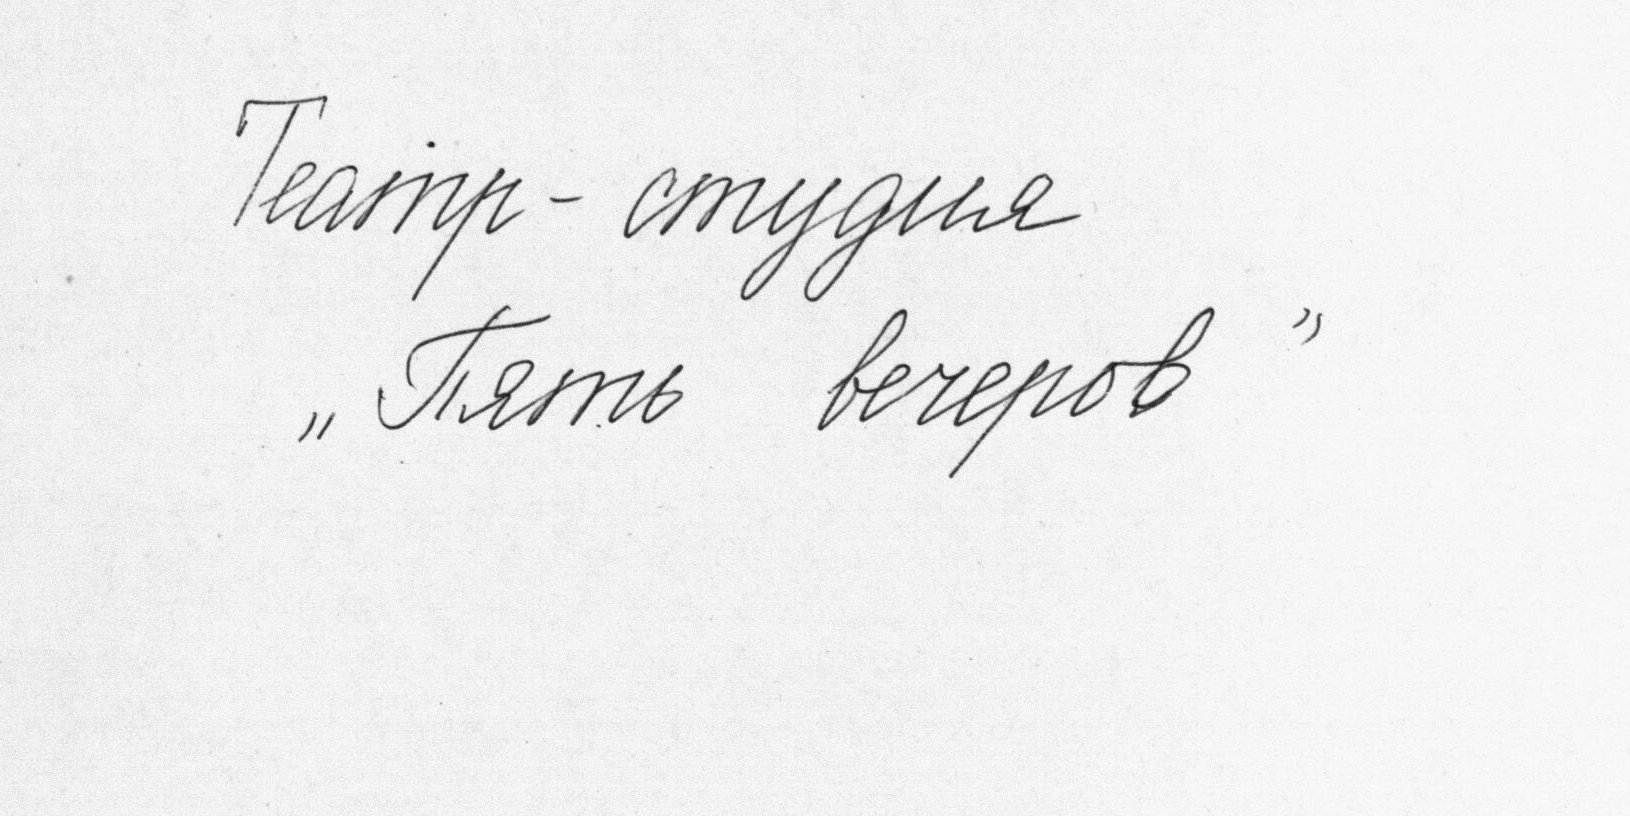 Театр - студия
„Пять вечеров”